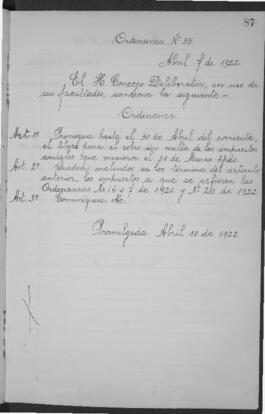 87
Ordenanza Nº 35.
Abril 7 de 1922.
El H. Concejo Deliberativo, en uso de
sus facultades, sanciona la siguiente -
Ordenanza
Art. 1º Prorrogase hasta el 30 de Abril del corriente,
el plazo para el cobro sin multa de los impuestos
que vencieron el 31 de Marzo ppdo.
Art. 2º Quedan incluidos en los términos del artículo
anterior, los impuestos a que se refieren las
Ordenanzas Nº 14 y 7 de 1920 y Nº 20 de 1922
Art. 3º Comuníquese, etc.
Promulgada Abril 10 de 1922